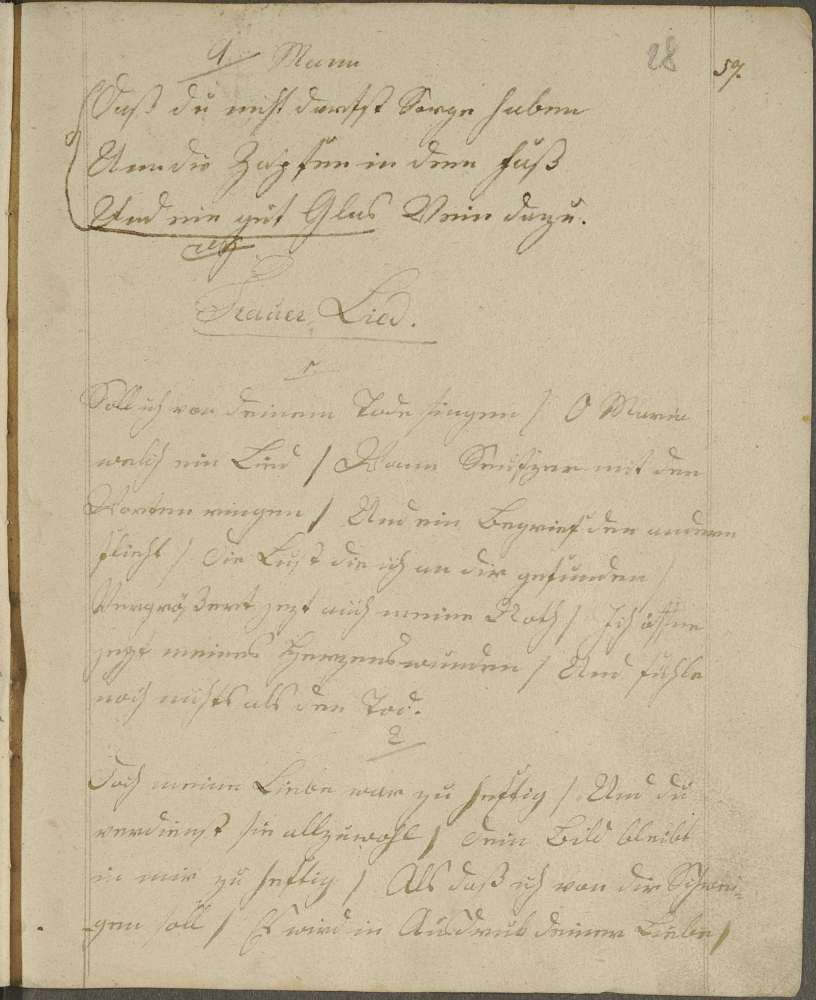 9 Mann
28
59.
Daß du nicht darfst Sorge haben
Um die Zäpfen in dem Fuß
Und ein gut Glas Wein dazu.
Trauer Lied.
1
Soll ich von deinem Tode singen / O Maria
welch ein Lied / Wann Seufzer mit den
Worten ringen / Und ein Begrief den andern
flieht / Die Lust die ich an dir gefunden /
Vergrößert jezt auch meine Noth / Ich öffne
jezt meines Herzens wunden / Und fühle
noch nichts als den Tod.
2
Doch meine Liebe war zu heftig / Und du
verdienst sie allzuwohl / Dein Bild bleibt
in mir zu heftig / Als daß ich von dir Schwei=
gen soll / Es wird in Ausdruk deiner Liebe /